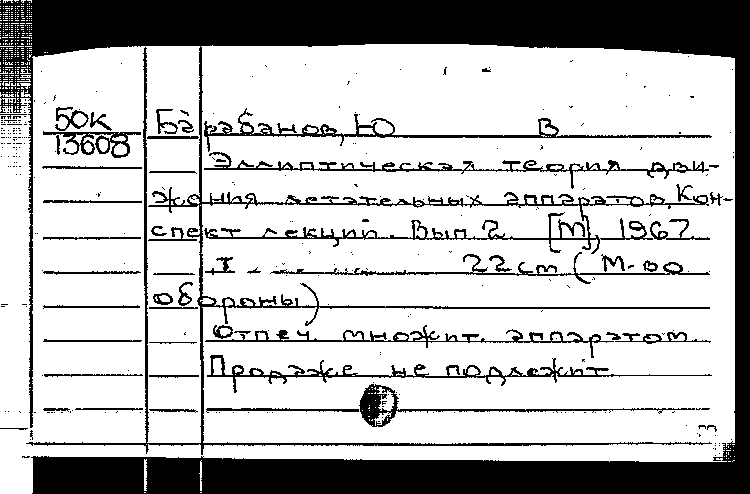 50К Барабанов, Ю В
13608
Эллиптическая теория дви-
жения летательных аппаратов. Кон-
спект лекций. Вып. 2. [М], 1967.
22 cm (М-во
обороны)
Отпеч. множит. аппаратом.
Продаже не подлежит.